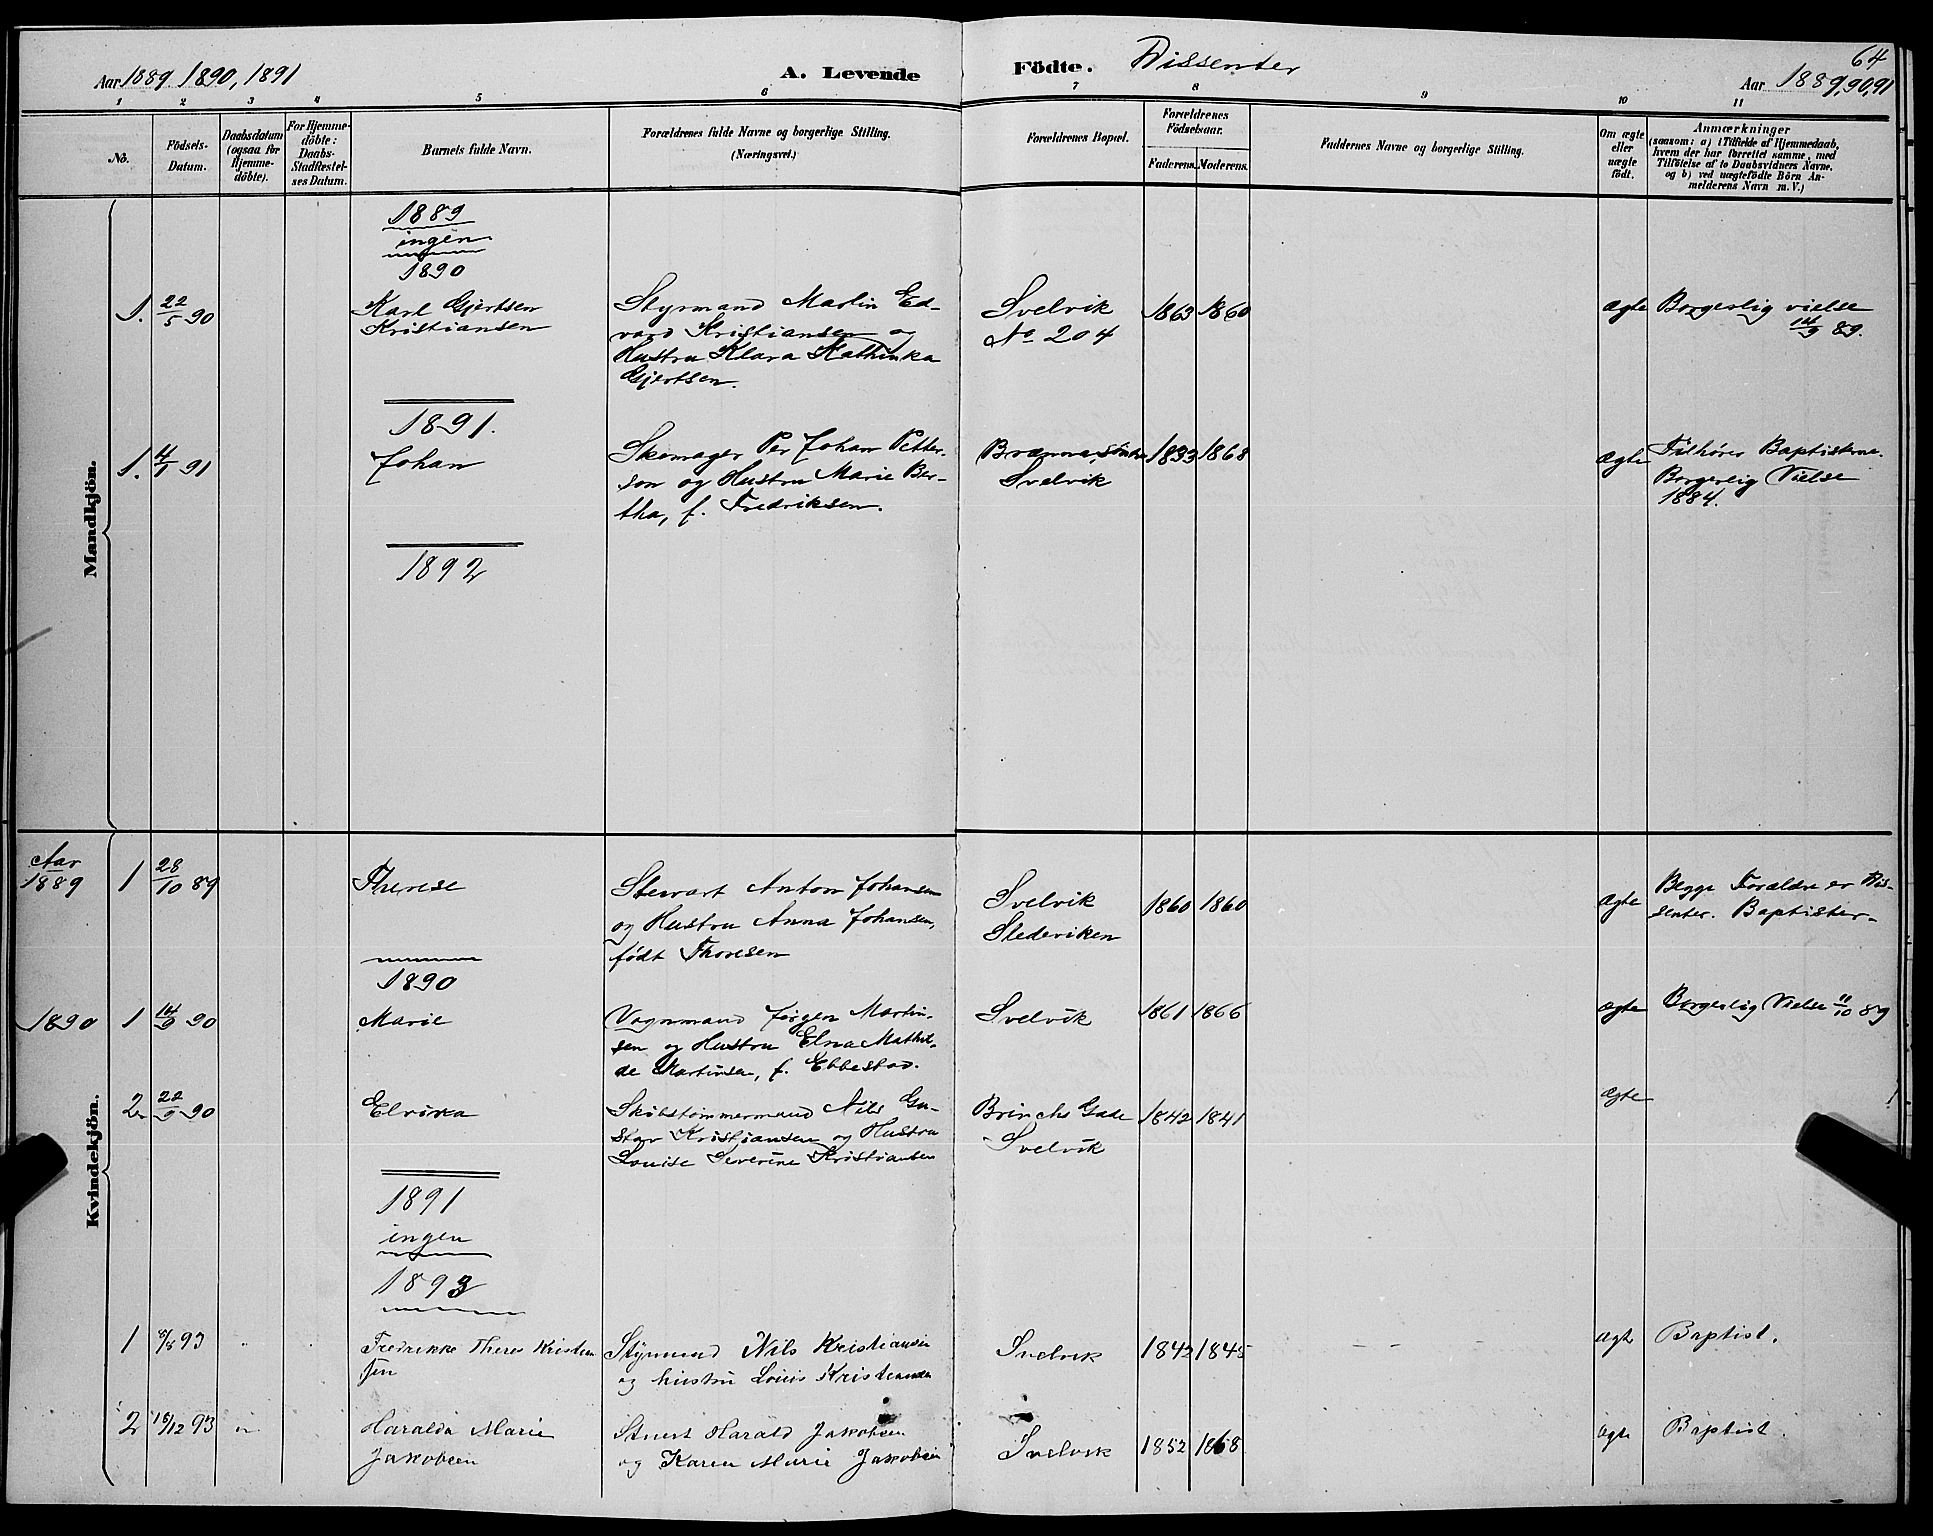 Aar 1889, 1890, 1891
A. Levende Födte. Dissenter
64
Aar 1889, 90, 91
1 2 3 4 5 6 7 8 9 10 11
No.
Födsels-Datum.
Daabsdatum (ogsaa for Hjemme-döbte).
For Hjemme-döbte: Daabs-Stadfæstel-ses Datum.
Barnets fulde Navn.
Forældrenes fulde Navne og borgerlige Stilling.
(Næringsvei.)
Forældrenes Bopæl.
Forældrenes Födselsaar.
Faderens. Moderens.
Faddernes Navne og borgerlige Stilling.
Om ægte eller uægte födt.
Anmærkninger
(saasom: a) i Tilfælde af Hjemmedaab,
hvem der har forrettet samme, med
Tilföielse af to Daabsvidners Navne.
og b) ved uægtefödte Börn An-
melderens Navn m. V.)
Mandkjön.
1889
ingen
1890
1. 22/5 90 Karl Gjertsen Styrmand Martin Ed- Svelvik 1863 1860 ægte Borgerlig vielse
Kristiansen vard Kristiansen og No 204 14/9 89.
Hustru Klara Kathinka
Gjertsen.
1891.
1. 4/1 91 Johan Skomager Per Johan Petter- 1833 1868 ægte Tilhører Baptisterne.
son og Hustru Marie Ber- Svelvik Borgerlig Vielse
tha, f. Fredriksen. 1884.
1892
Kvindekjön.
Aar
1889 1 28/10 89 Therese Stewart Anton Johansen Svelvik 1860 1860 ægte Begge Forældre er Dis-
og Hustru Anna Johansen, Slederiken senter. Baptister-
født Thoresen
1890
1890 1 14/9 90 Marie Vognmand Jørgen Martin- Svelvik 1861 1866 ægte Borgerlig Vielse 11/10 89
sen og Hustru Elna Mathil-
de Martinsen, f. Ebbestad.
2 22/9 90 Elvira Skibstømmermand Nils Gu- Brinchs Gade 1842 1841 ægte
stav Kristjansen og Hustru Svelvik
Louise Severine Kristiansen
1891
ingen
1893
1 8/8 93 " Fredrikke Theres Kristian Styrmand Nils Kristiansen Svelvik 1842 1845 - - ægte Baptist.
sen og hustru Louis Kristiansen
2 15/12 93 " Haralda Marie Stuert Harald Jakobsen Svelvik 1852 1868 ægte Baptist.
Jakobsen og Karen Marie Jakobsen